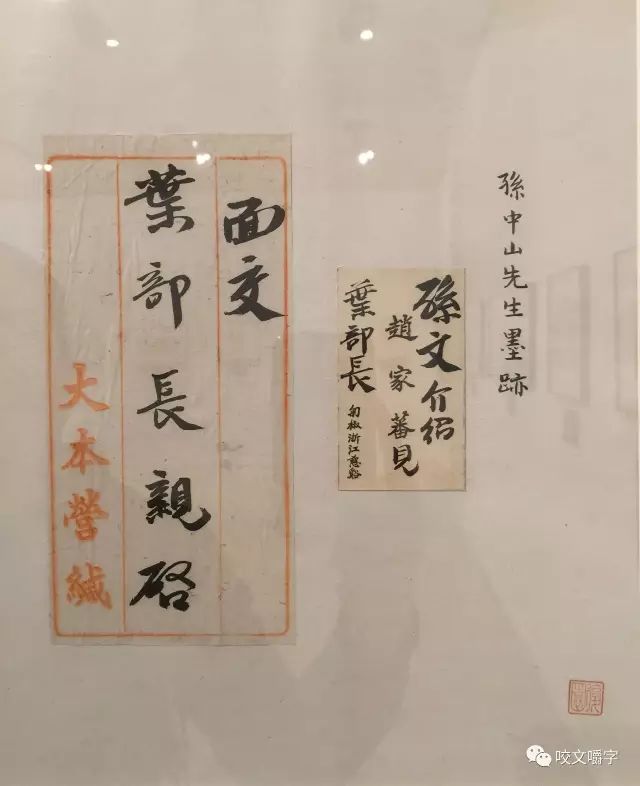 孫中山先生墨跡
孫文介紹
趙家蕃見
葉部長
浙江慈谿
面交
葉部長親啓
大本營緘
咬文嚼字